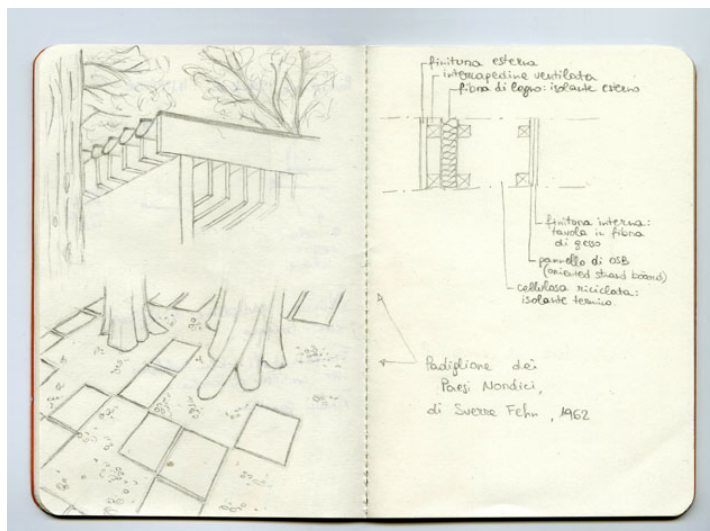 finitura esterna
intercapedine ventilata
fibra di legno: isolante esterno
finitura interna:
tavola in fibra
di gesso
pannello di OSB
(oriented strand board)
cellulosa riciclata:
isolante termico
Padiglione dei
Paesi Nordici,
di Sverre Fehn, 1962